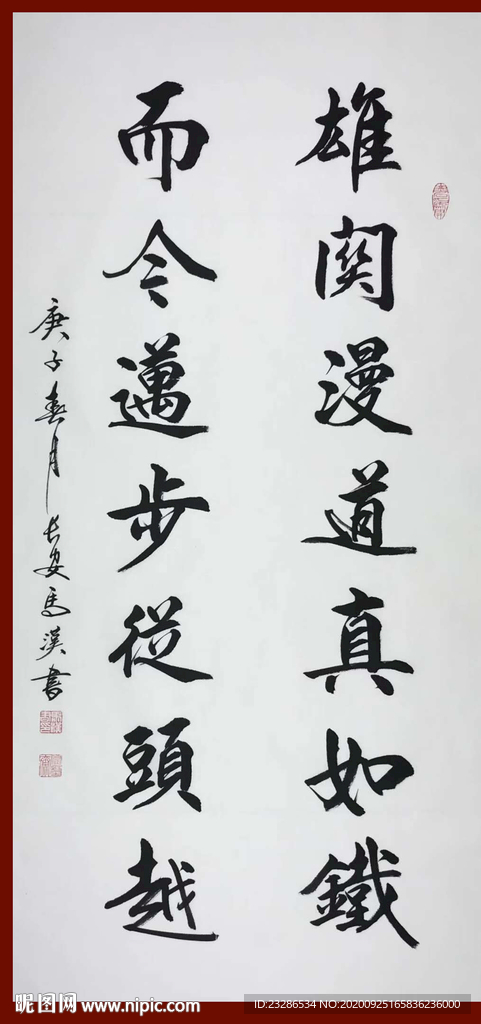 雄関漫道真如鐵
而今邁步從頭越
庚子春月长安馬漢書
昵图网 www.nipic.com
ID:23286534 NO:20200925165836236000